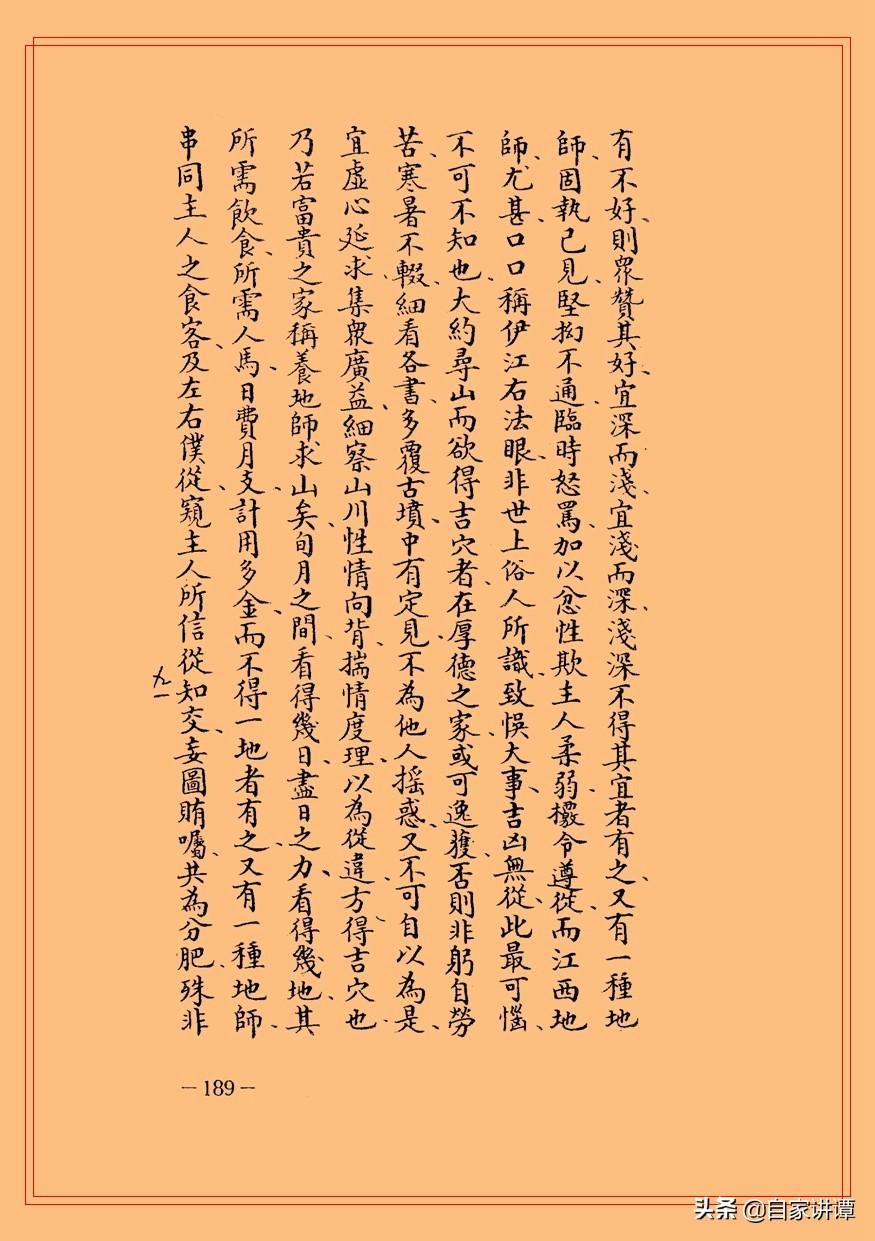 有不好、則眾贊其好、宜深而淺、宜淺而深、淺深不得其宜者有之、又有一種地
師、固執己見、堅拗不通、臨時怒罵、加以忿性、欺主人柔弱、欉令遵從、而江西地
師、尤甚、口口稱伊江右法眼、非世上俗人所識、致悞大事、吉凶無從、此最可惱、
不可不知也、大約尋山而欲得吉穴者、在厚德之家、或可逸獲、否則非躬自勞
苦、寒暑不輟、細看各書、多覆古墳、中有定見、不為他人搖惑、又不可自以為是、
宜虛心延求、集眾廣益、細察山川性情向背、揣情度理、以為從違、方得吉穴也、
乃若富貴之家、稱養地師求山矣、旬月之間、看得幾日、盡日之力、看得幾地、其
所需飲食、所需人馬、日費月支、計用多金、而不得一地者有之、又有一種地師、
串同主人之食客、及左右僕從、窺主人所信從知交、妄圖賄囑、共為分肥、殊非
九一
— 189 —
头条 @自家讲谭